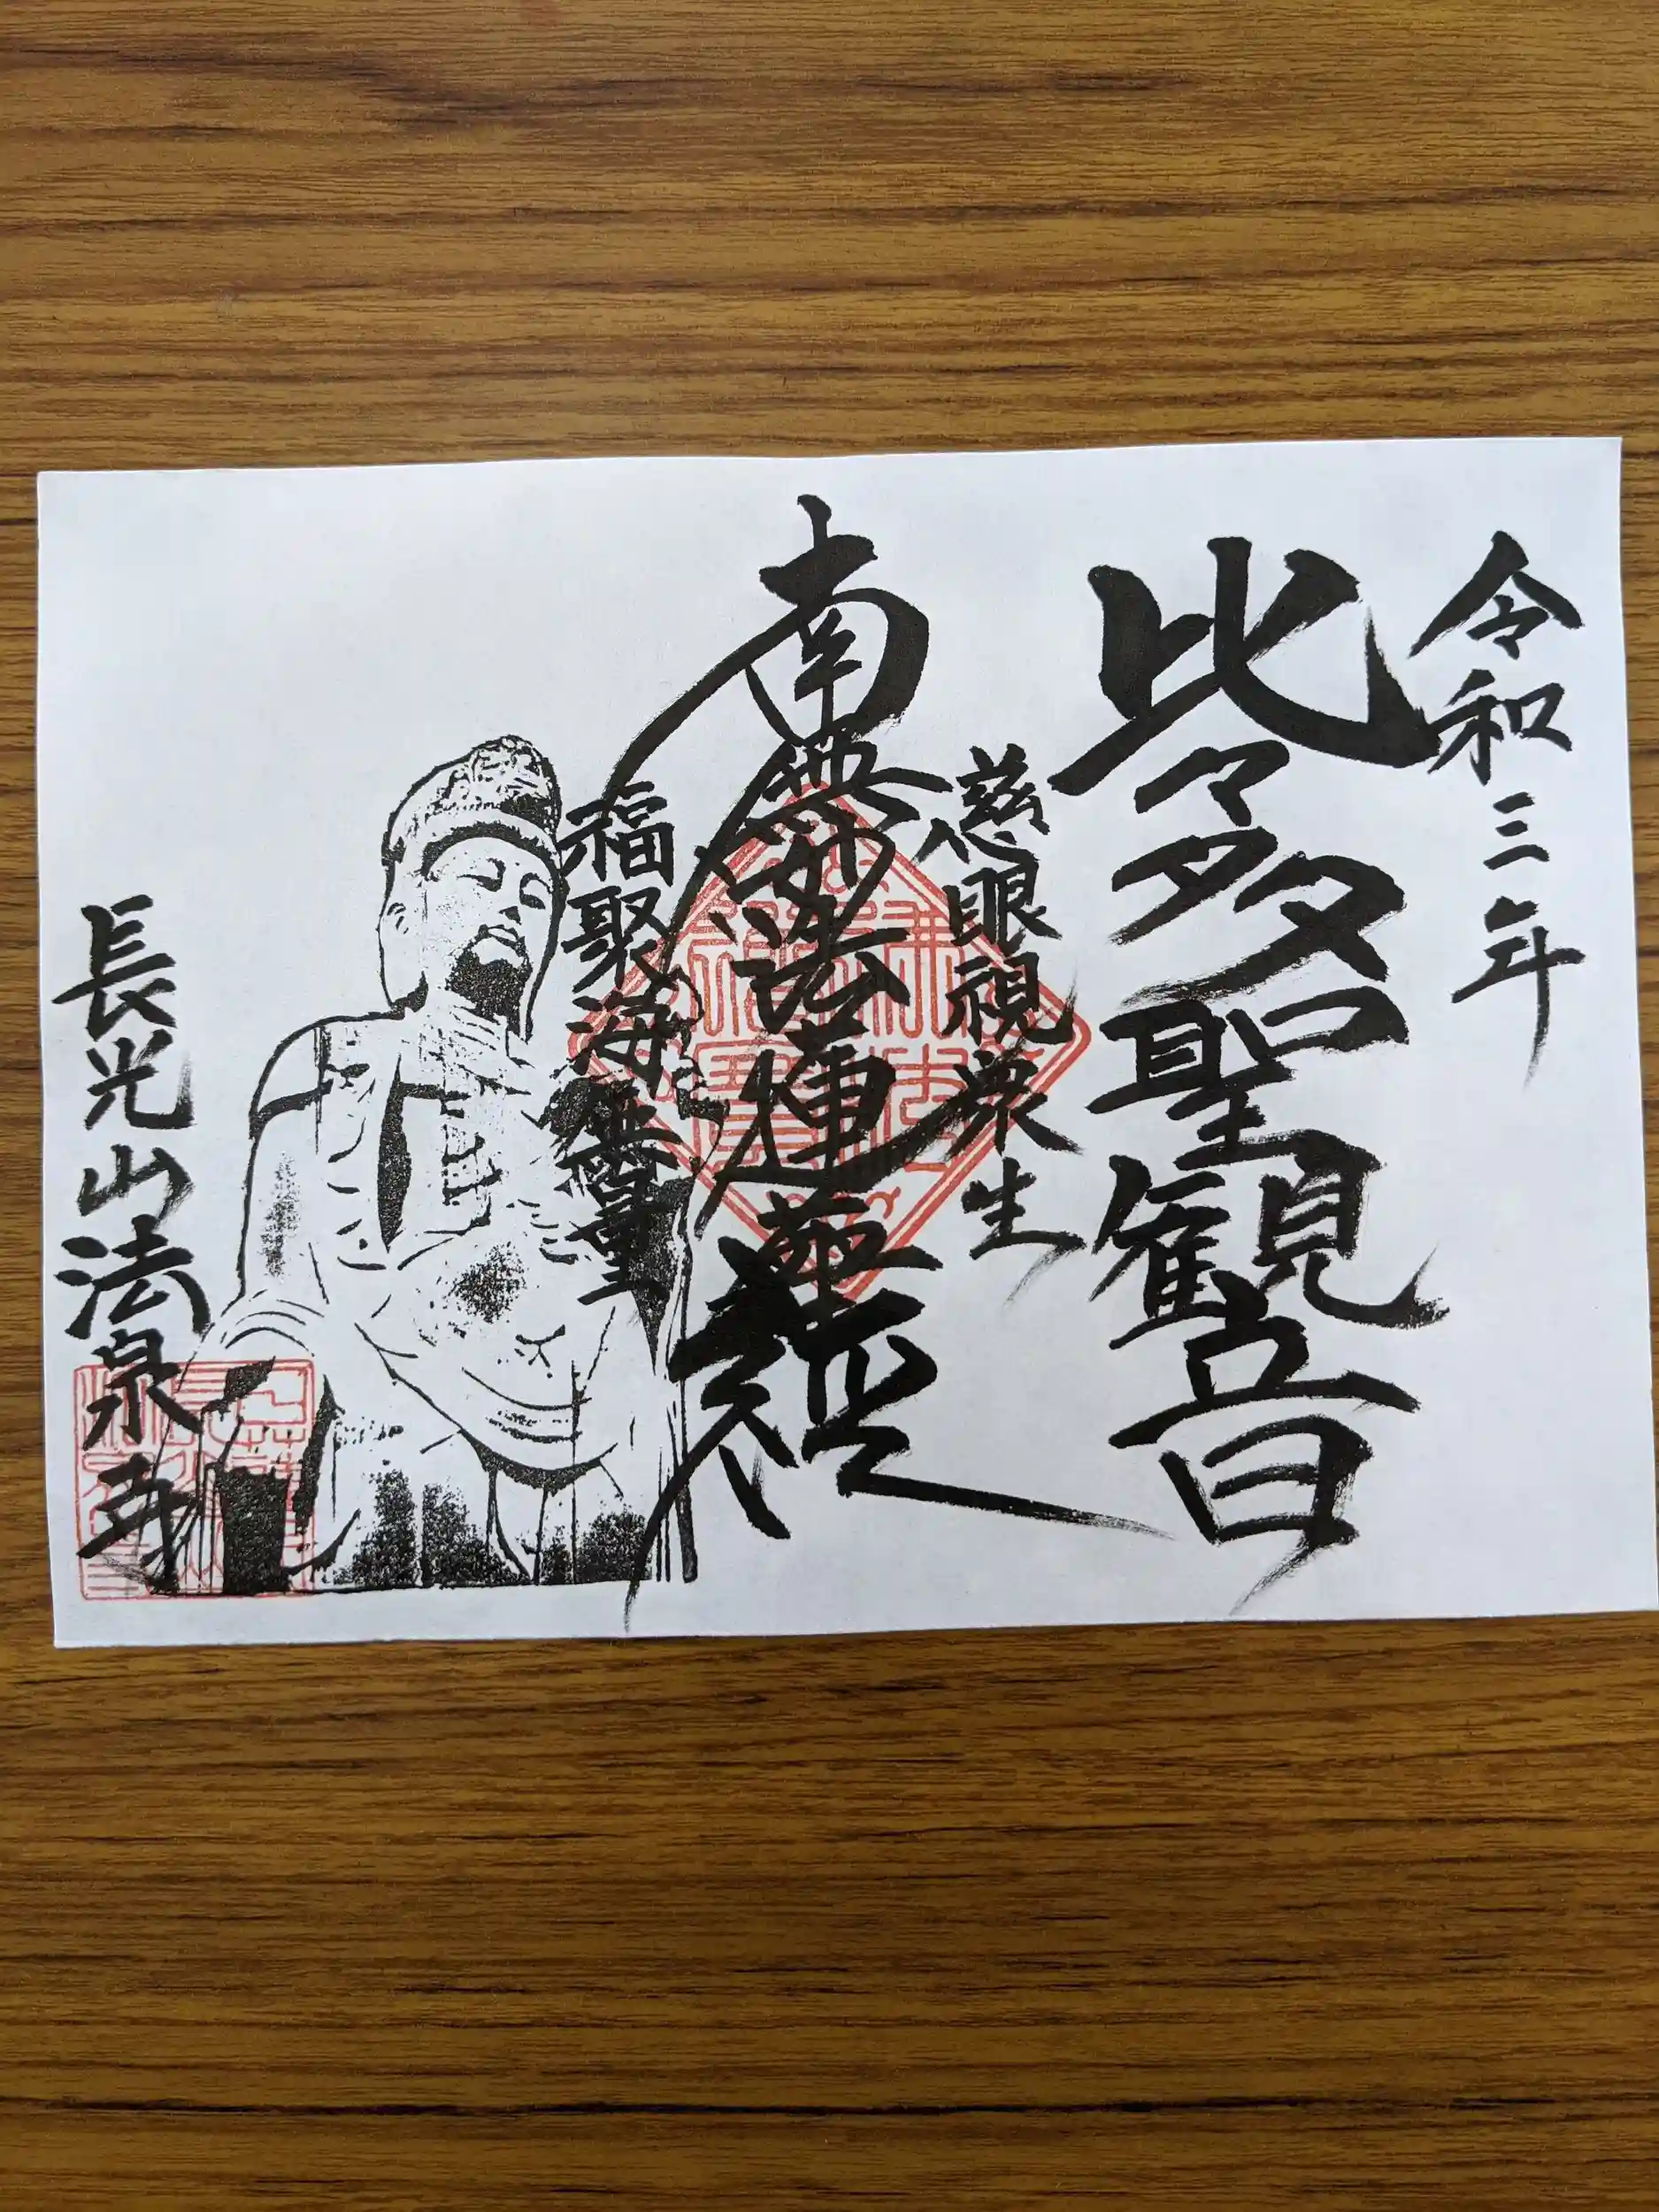 令和三年
比々多聖観音
慈眼視衆生
南無妙法蓮華経
福聚海無量
長光山法泉寺